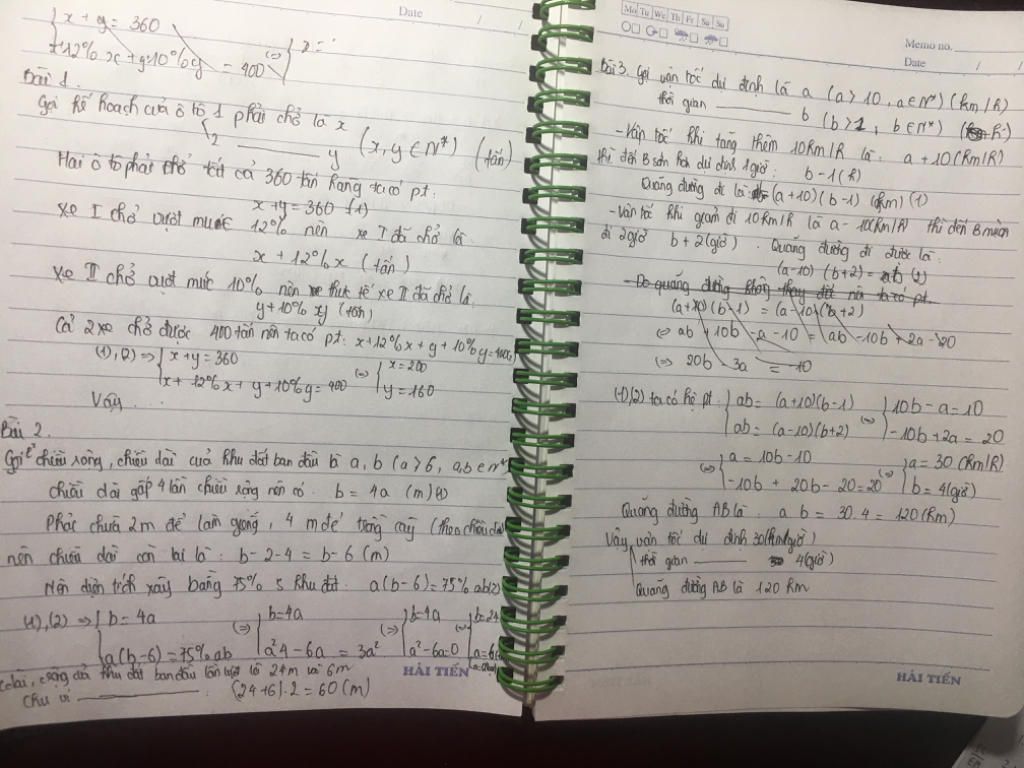 Date / /
{x + y = 360
x+12% x + y+10% y = 400 (=) { x = :
Bài 1.
Gọi kế hoạch của ô tô 1 phải chở là x
2 ——— y (x, y ∈ N*) (tấn)
Hai ô tô phải chở tất cả 360 tấn hàng ta có pt:
x+y = 360 (1)
Xe I chở vượt mức 12% nên xe I đã chở là
x + 12% x (tấn)
Xe II chở vượt mức 10% nên xe thực tế xe II đã chở là
y + 10% xy (tấn)
Cả 2 xe chở được 400 tấn nên ta có pt: x+12% x + y + 10% y = 400
(1), (2) => { x + y = 360 (=) { x = 200
x + 12% x + y + 10% y = 400 y = 160
Vậy
Bài 2.
Gọi chiều rộng, chiều dài của khu đất ban đầu là a, b (a > 6, a,b ∈ N*
chiều dài gấp 4 lần chiều rộng nên có b = 4a (m) (1)
Phải chừa 2m để làm , 4 m để trồng cây (theo chiều dài
nên chiều dài còn lại là : b - 2 - 4 = b - 6 (m)
Nên diện tích xây bằng 75% S khu đất. a(b-6) = 75% ab (2)
(1), (2) => { b = 4a (=) { b = 4a (=) { b = 4a (=) { b = 24
a(b-6) = 75% ab a²4 - 6a = 3a² a² - 6a = 0 a = 6
dài, rộng của khu đất ban đầu lần lượt là 24m và 6m
Chu vi ——— : (24+6).2 = 60 (m)
HẢI TIẾN
Mo Tu We Th Fr Sa Su
Memo no.
Date / /
Bài 3. Gọi vận tốc dự định là a (a > 10, a ∈ N*) (km/h)
thời gian ——— b (b > 1, b ∈ N*) (h)
- Vận tốc khi tăng thêm 10km/h là: a + 10 (km/h)
thì đến B sớm hơn dự định 1 giờ: b - 1 (h)
Quãng đường đi là: (a+10)(b-1) (km) (1)
- Vận tốc khi giảm đi 10km/h là a - 10(km/h) thì đến B muộn
đi 2 giờ b + 2 (giờ). Quãng đường đi được là:
(a-10)(b+2) = ab (2)
- Do quãng đường không thay đổi nên ta có pt
(a+10)(b-1) = (a-10)(b+2)
(=) ab + 10b - a - 10 = ab - 10b + 2a - 20
(=) 20b - 3a = -10
(1),(2) ta có hệ pt. { ab = (a+10)(b-1) (=) { 10b - a = 10
ab = (a-10)(b+2) -10b + 2a = 20
(=) { a = 10b - 10 (=) { a = 30 (km/h)
-10b + 20b - 20 = 20 b = 4 (giờ)
Quãng đường AB là : a b = 30.4 = 120 (km)
Vậy vận tốc dự định 30(km/giờ)
thời gian ——— 4(giờ)
Quãng đường AB là 120 km
HẢI TIẾN